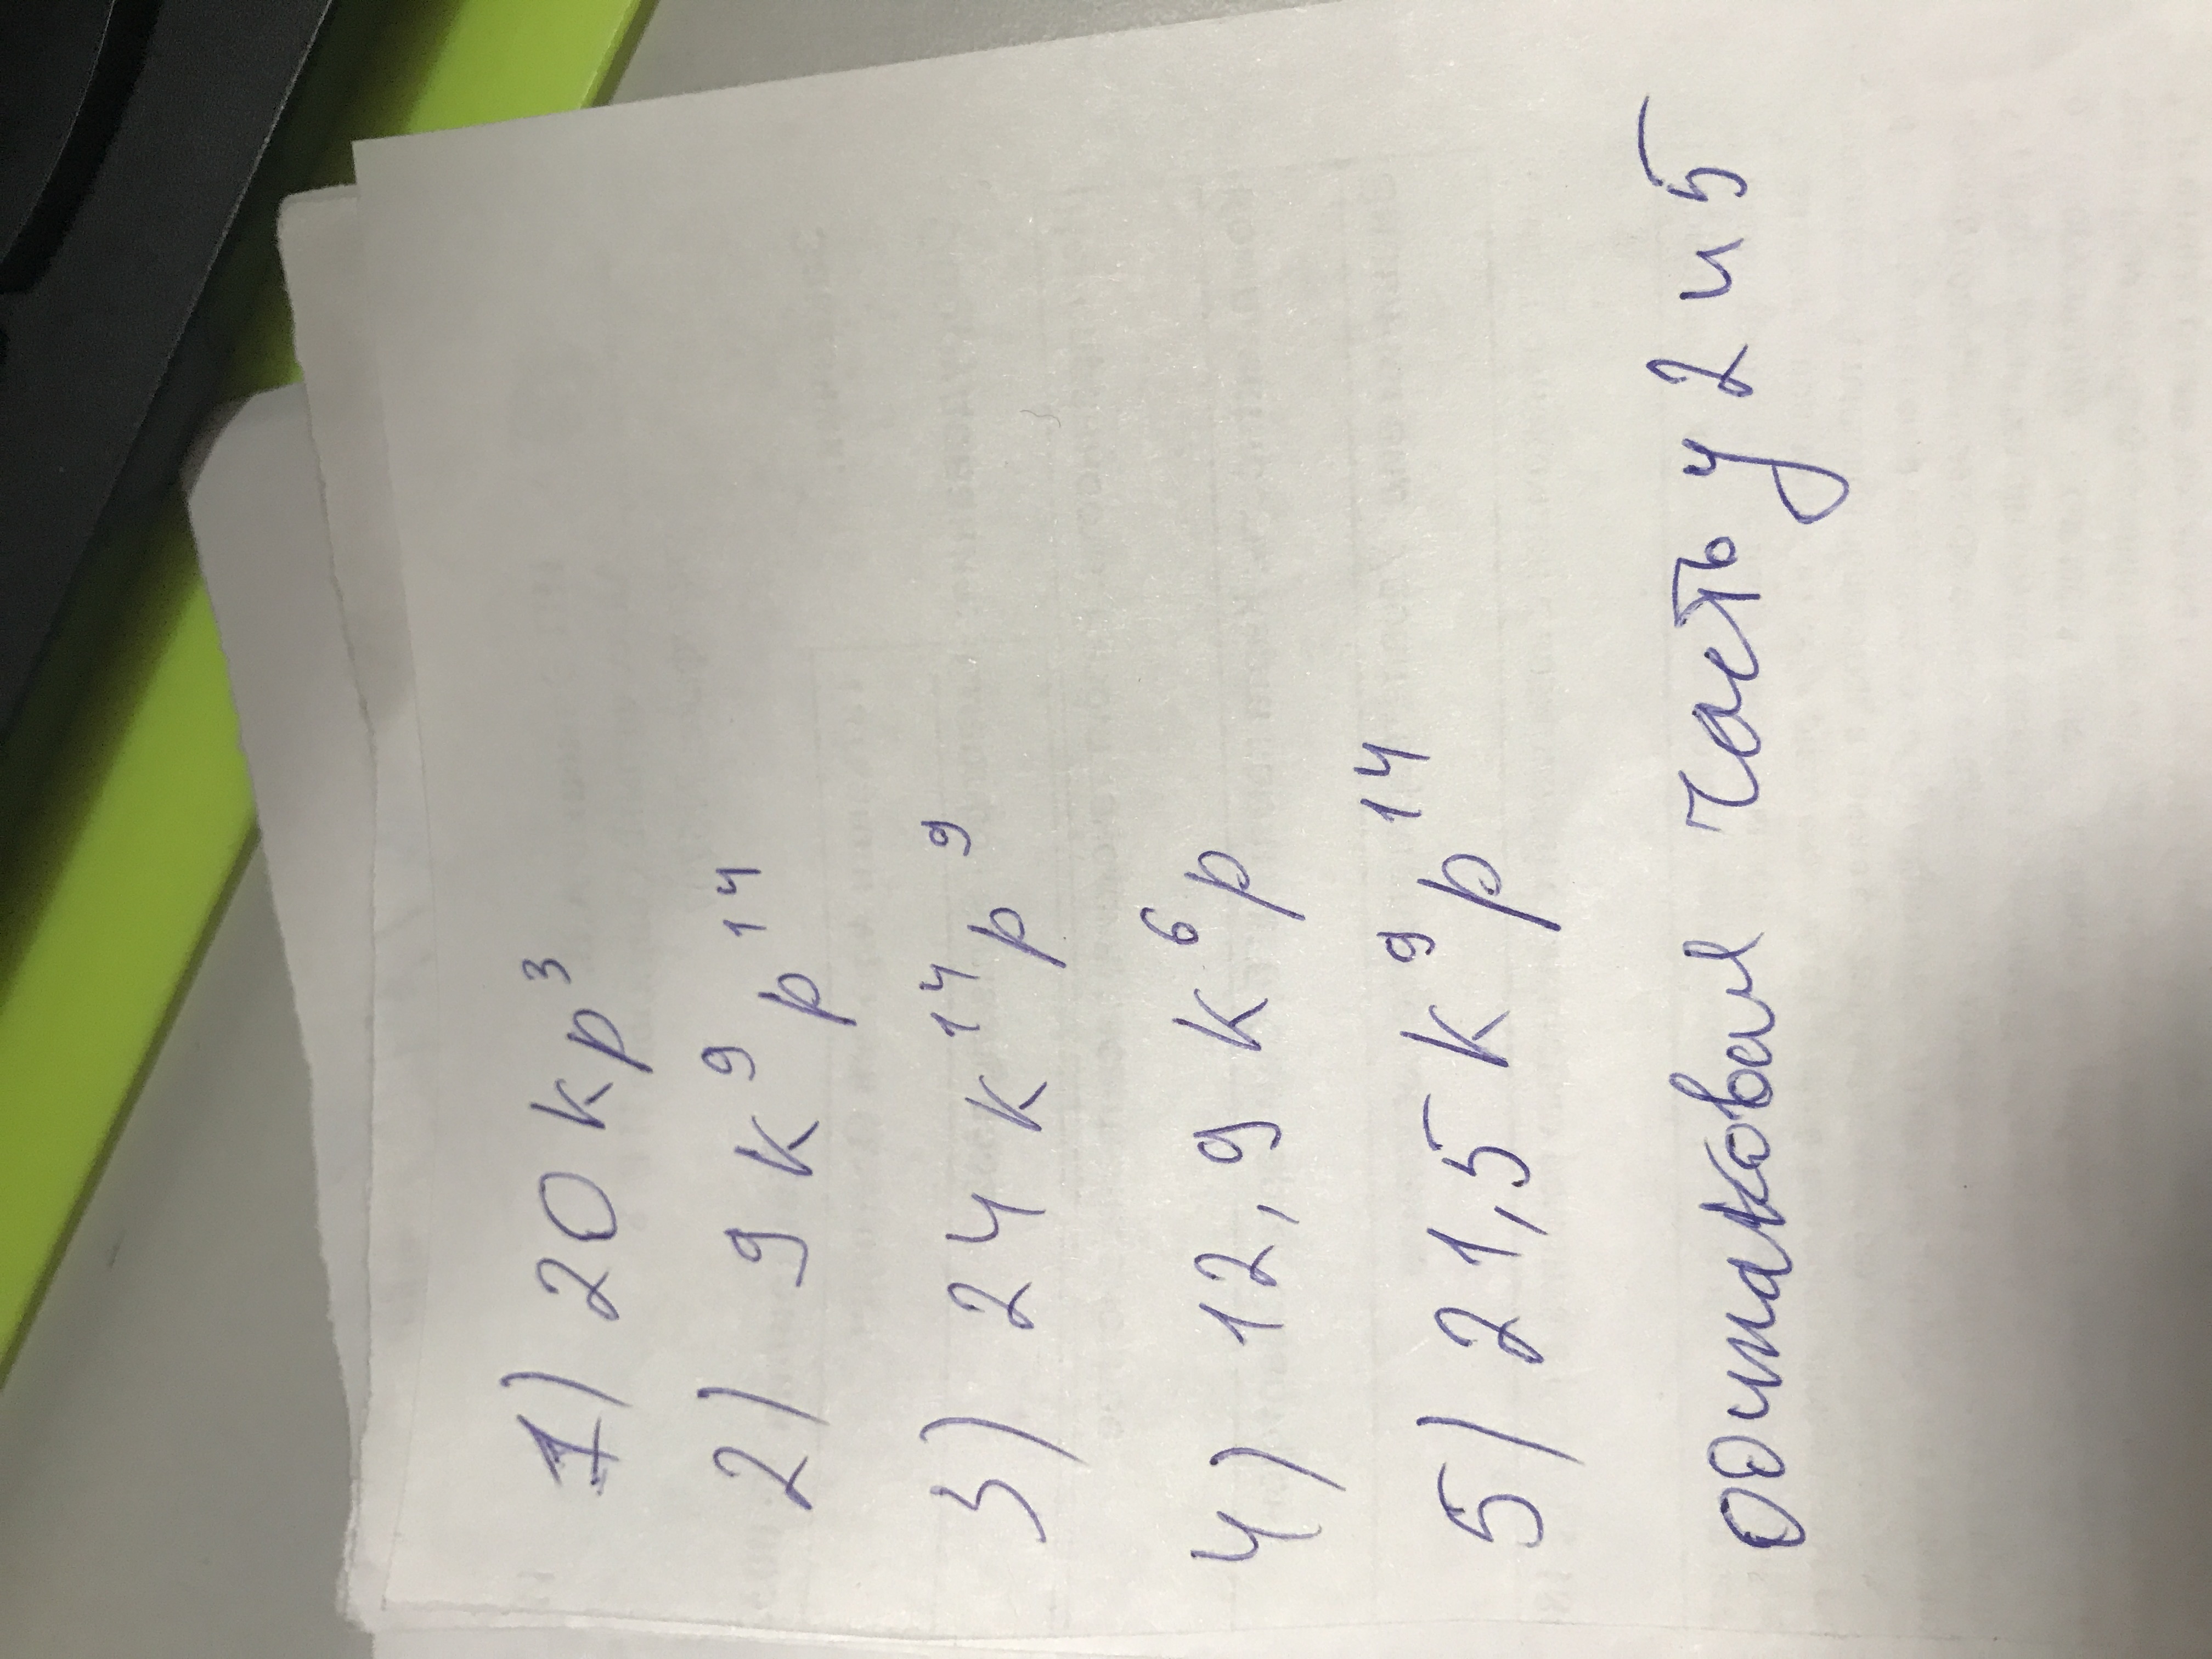 1) 20 kp³
2) 9 k⁹ p¹⁴
3) 24 k¹⁴ p⁹
4) 12,9 k⁶ p
5) 21,5 k⁹ p¹⁴
одинаковая часть у 2 и 5